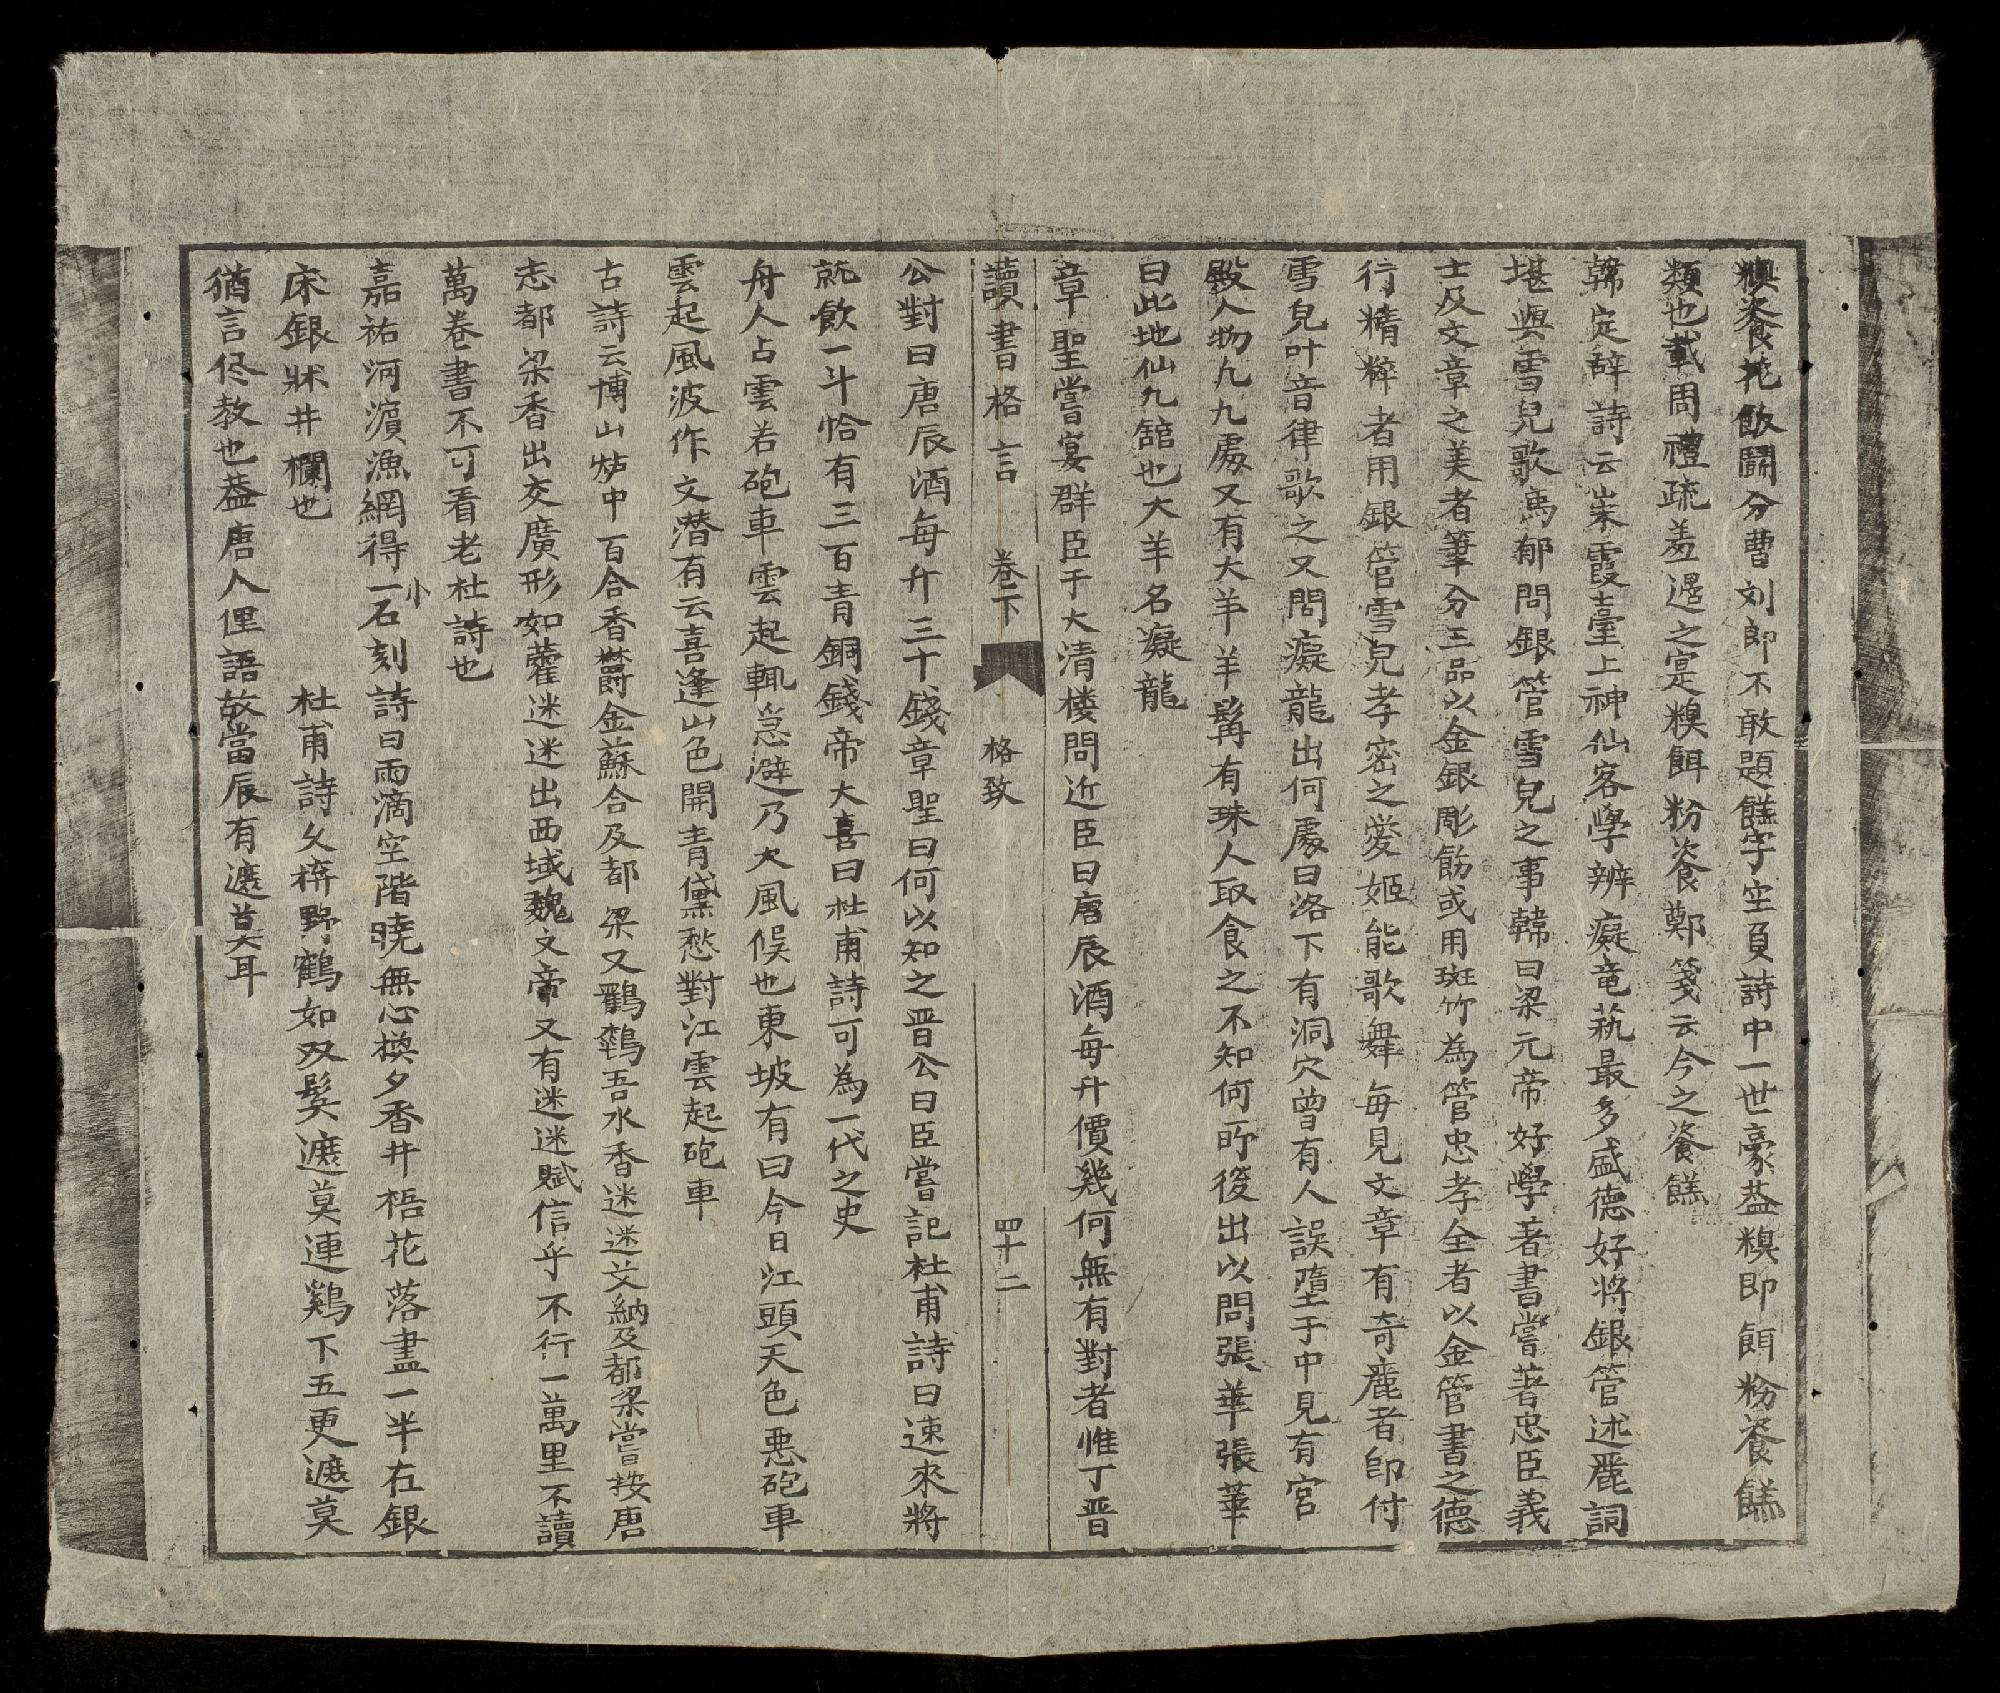 糗餈花飲鬪分曹刘郎不敢題餻字空負詩中一世豪盖糗即餌粉餈餻
類也載周禮疏羞籩之寔糗餌粉餈鄭箋云今之餈餻
韓定辞詩云崇霞臺上神仙客學辨癡竜藝最多盛德好将銀管述麗詞
堪與雪兒歌馬郁問銀管雪兒之事韓曰梁元帝好學著書嘗著忠臣義
士及文章之美者筆分三品以金銀彫飭或用斑竹為管忠孝全者以金管書之德
行精粹者用銀管雪兒孝密之愛姬能歌舞每見文章有奇麗者即付
雪兒叶音律歌之又問癡龍出何處曰洛下有洞穴曾有人誤墮于中見有宮
殿人物九九處又有大羊羊髯有珠人取食之不知何所後出以問張華張華
曰此地仙九舘也大羊名癡龍
章聖嘗宴群臣于大清楼問近臣曰唐辰酒每升價幾何無有對者惟丁晋
讀書格言 卷下 格致 四十二
公對曰唐辰酒每升三十錢章聖曰何以知之晋公曰臣嘗記杜甫詩曰速來將
就飲一斗恰有三百青銅錢帝大喜曰杜甫詩可為一代之史
舟人占雲若砲車雲起輒急避乃大風候也東坡有曰今日江頭天色悪砲車
雲起風波作文潜有云喜逢山色開青黛愁對江雲起砲車
古詩云博山炉中百合香欝金蘇合及都梁又氍毹吾水香迷迷艾納及都梁嘗按唐
志都梁香出交廣形如藿迷迷出西域魏文帝又有迷迷賦信乎不行一萬里不讀
萬卷書不可看老杜詩也
嘉祐河濵漁網得一小石刻詩曰雨滴空階曉無心換夕香井梧花落盡一半在銀
床銀牀井欄也 杜甫詩久拚野鶴如双髩遮莫連鷄下五更遮莫
猶言侭教也盖唐人俚語故當辰有遮莫耳